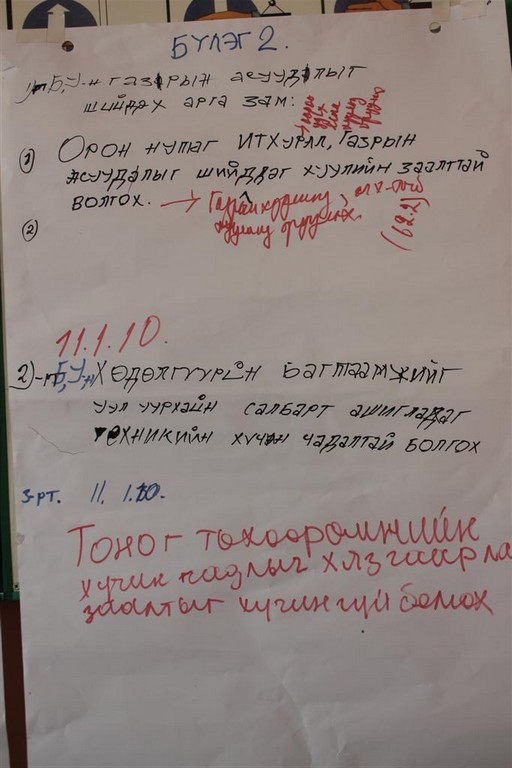 БҮЛЭГ 2.
Б,У-н газрын асуудлыг
шийдэх арга зам:
① Орон нутаг ИТХурал, Газрын
асуудалыг шийддэг хуулийн заалттай
болгох. →
(62.2)
②
11.1.10.
2)-т Б,У-н Хөдөлгүүрийн багтаамжийг
уул уурхайн салбарт ашигладаг
техникийн хүчин чадалтай болгох
3-рт. 11. 1.10.
Тоног төхөөрөмжийн
хүчин чадлыг хязгаарла
заалтыг хүчингүй болгох